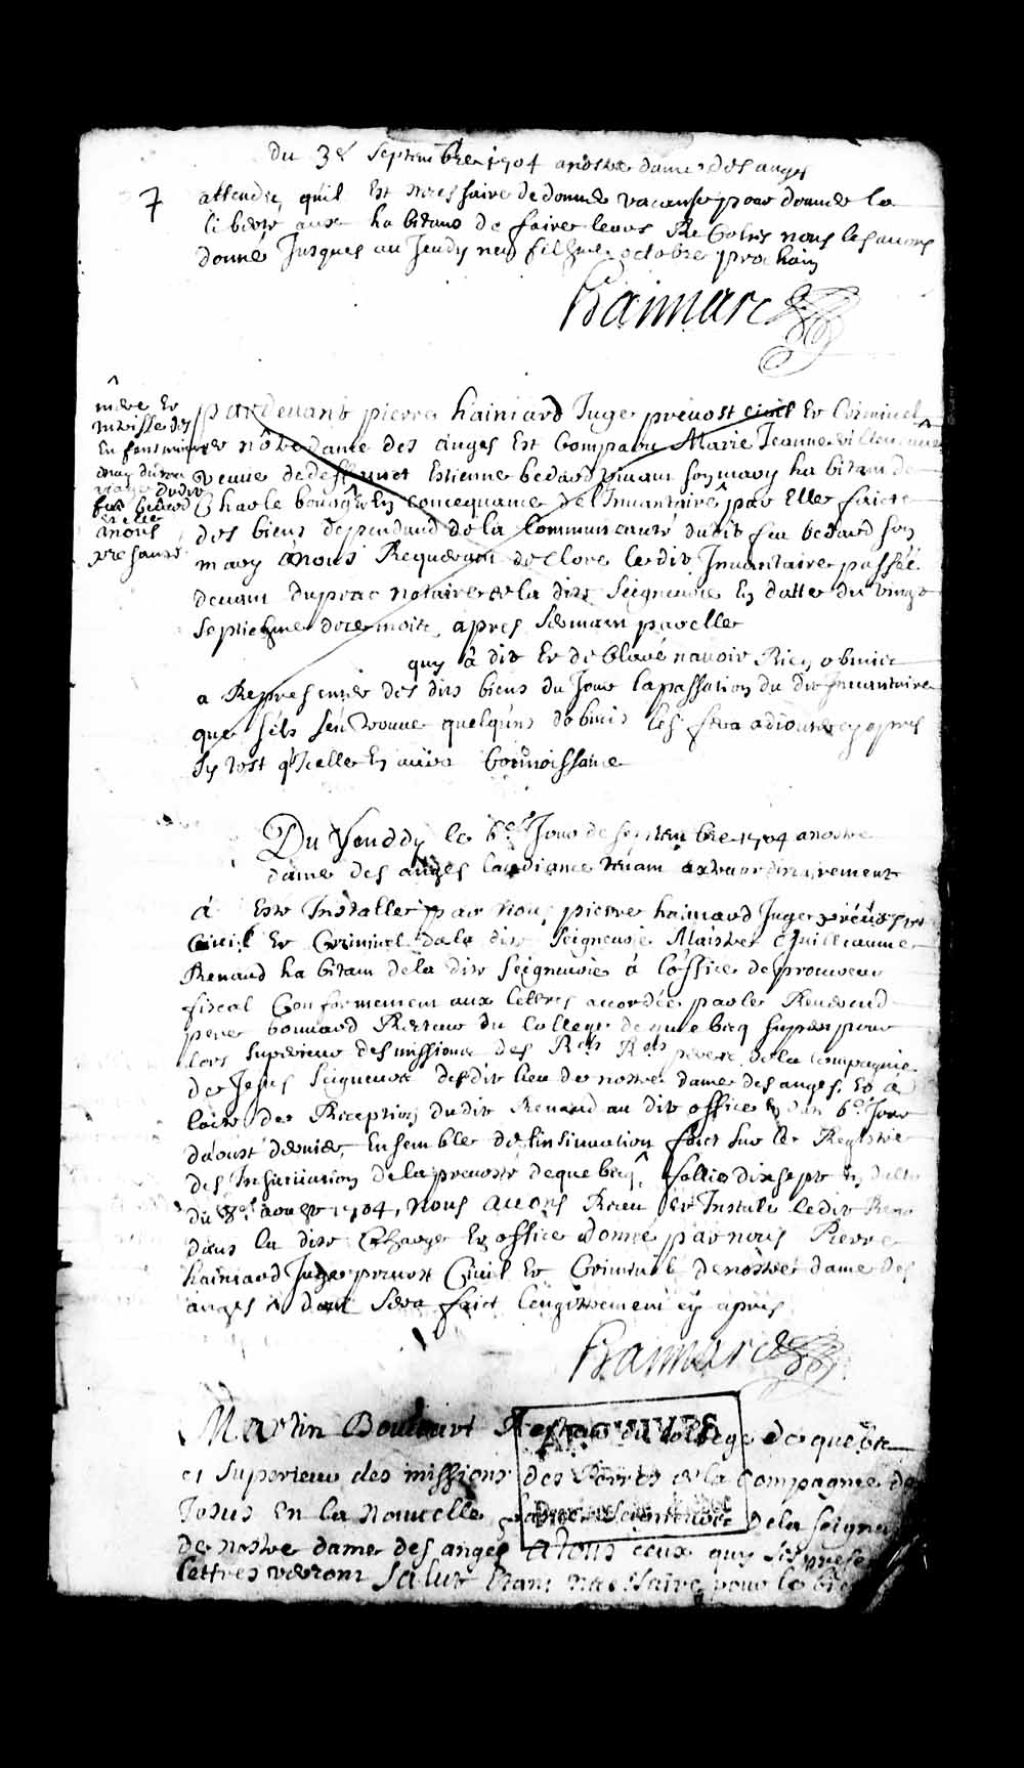 du 3e Septembre 1704 a nostre dame des anges
7
attendu qu'il Est necessaire de donner vacanse pour donner la
liberte aux habitans de faire leurs Recoltes nous les avons
donné Jusques au Jeudy neufiesme octobre prochain
Haimard
mere et
tutrisse des
Enfans mineurs
mariage dudit
feu bedard
et elle
a nous
presants
pardevant pierre haimard Juge prevost civil Et Criminel
nôtre dame des anges Est Comparu Marie Jeanne
veuve de deffunct Estienne bedard vivant son mary habitant de
Charlebourg En consequance de l'Inventaire par Elle faicte
des biens dependand de la Communauté dudit feu bedard son
mary a nous Requerant de clore le dit Inventaire passée
devant duprac notaire de la dite Seigneurie En datte du vingt
septiesme apres serment par elle
quy à dit Et declaré n'avoir Rien obmis
a Representer des dits biens du Jour la passation du dit Inventaire
que s'ils s'en trouve quelqu'uns d'obmis les fera adiouter cy apres
sy tost qu'icelle En aura Connoissance
Du Venddy le 5e Jour de septembre 1704 a nostre
dame des anges l'audiance tenant extraordinairement
à Este Installer par Nous pierre haimard Juge prevost
Civil Et Criminel de la dite Seigneurie Maistre Guillaume
Renaud habitant de la dite Seigneurie à l'office de procureur
fiscal Conformement aux lettres accordée par le Reverend
pere bouvard Recteur du College de quebecq
lors Superieur des missions des Rds Rds peres de la compagnie
de Jesus Seigneurs dudit lieu de nostre dame des anges, Et a
l'acte de Reception dudit Renaud au dit office En datte 6e Jour
d'aoust dernier, Ensemble de l'insinuation faict sur le Registre
des Insinuation de la prevosté de quebecq, follio dixsept En datte
du 8e aoust 1704, nous avons Receu Et Installé ledit
dans la dite Charge Et office donné par nous Pierre
haimard Juge prevost Civil Et Criminel de nostre dame des
anges dont sera faict l'Enregistrement cy apres
Haimard
Martin Bouvart Recteur du College de quebec
et Superieur des missions des Peres de la Compagnie de
Jesus En la Nouvelle france de la Seigneu
de nostre dame des anges a tous ceux quy ses prese
lettres verront Salut Etant necessaire pour le bie
ARCHIVES